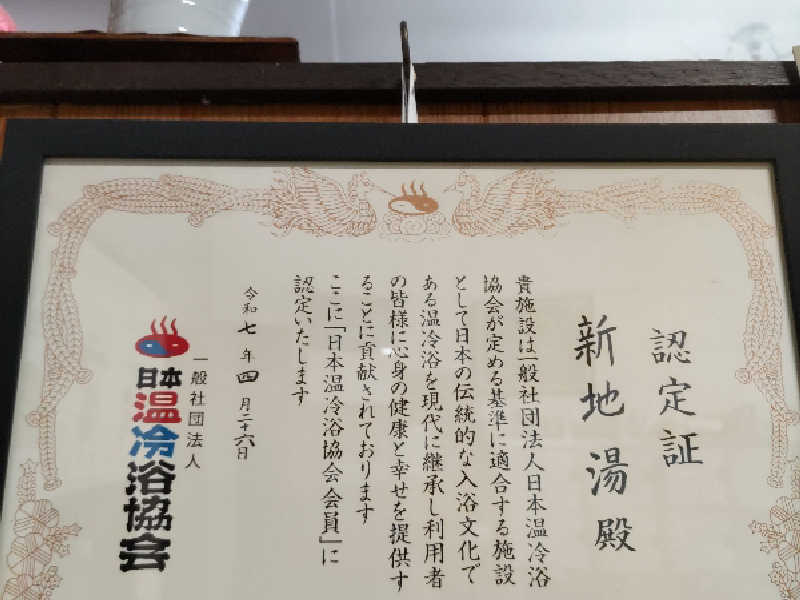 認定証
新地湯殿
貴施設は一般社団法人日本温冷浴
協会が定める基準に適合する施設
として日本の伝統的な入浴文化で
ある温冷浴を現代に継承し利用者
の皆様に心身の健康と幸せを提供す
ることに貢献されております
ここに「日本温冷浴協会会員」に
認定いたします
令和七年四月二十六日
一般社団法人
日本温冷浴協会